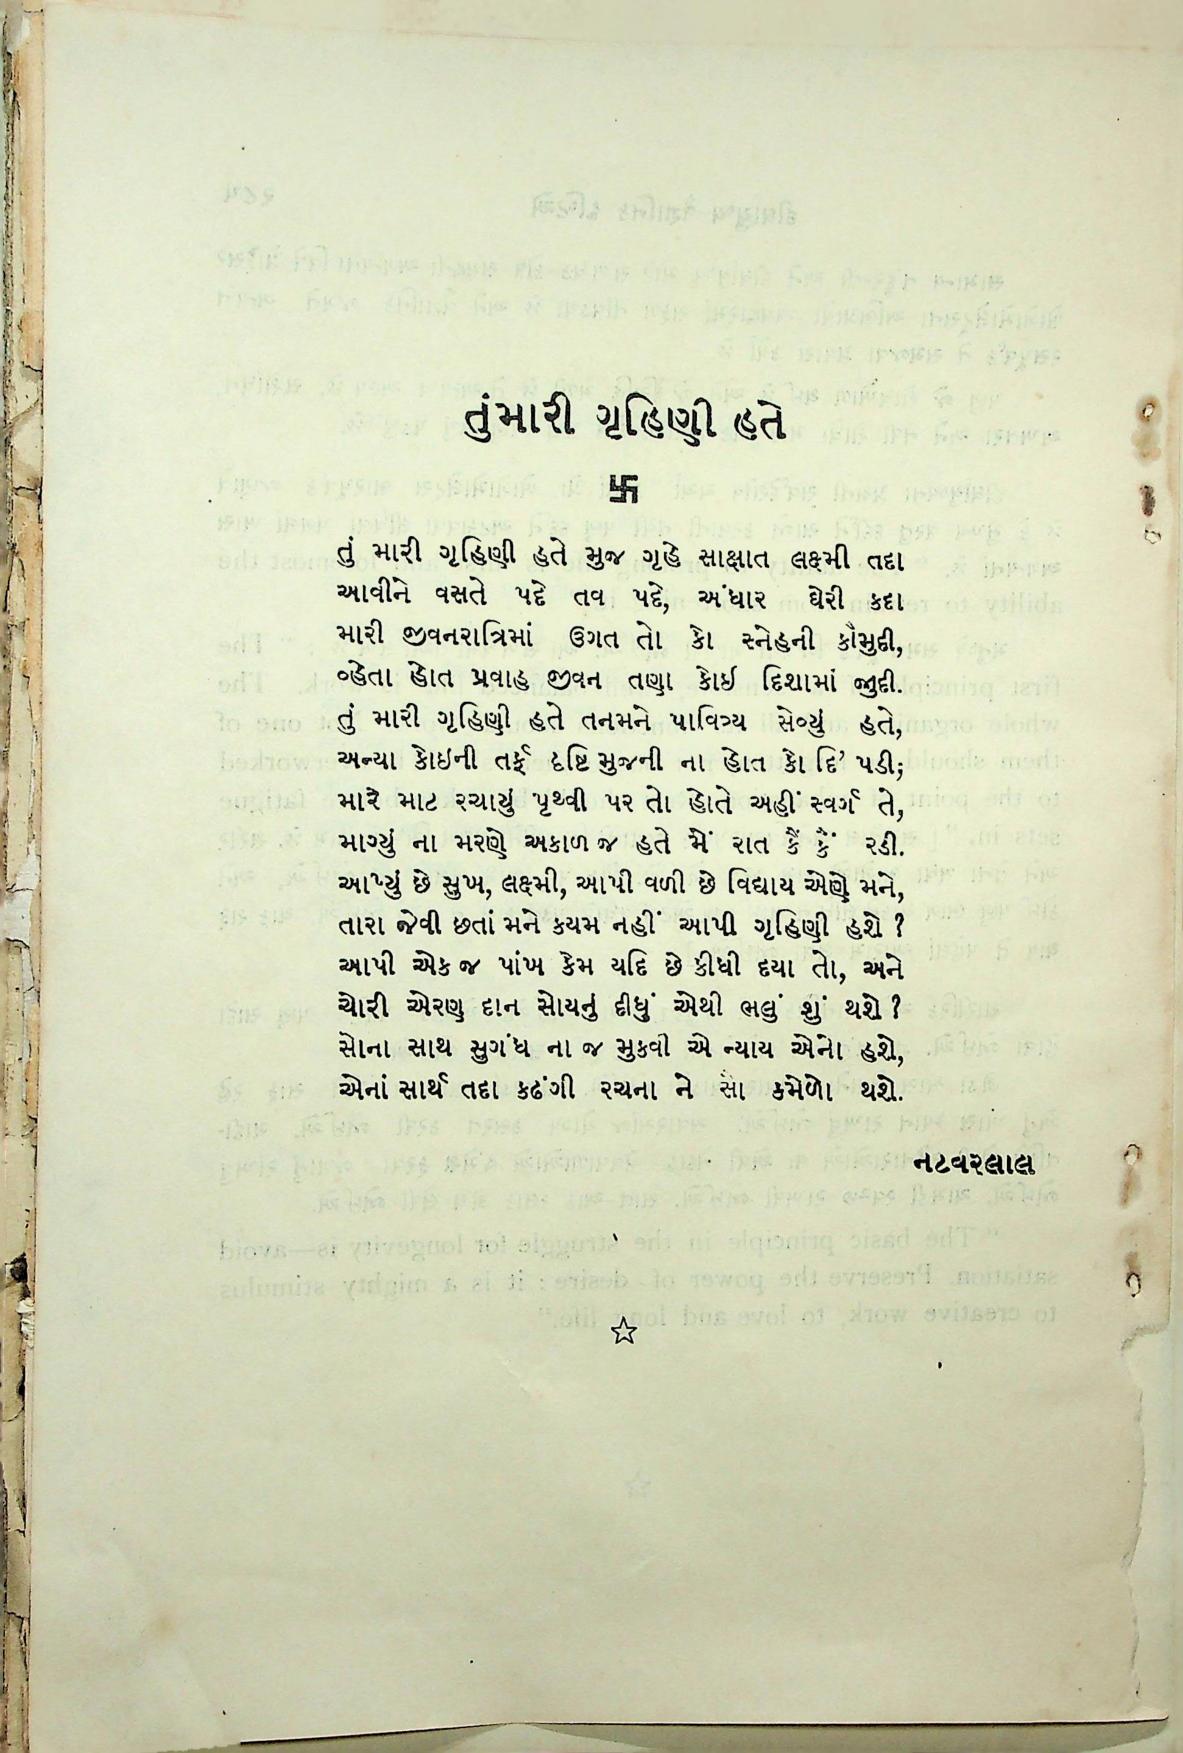 તુંમારી ગૃહિણી હતે
卐
તું મારી ગૃહિણી હતે મુજ ગૃહે સાક્ષાત લક્ષ્મી તદા
આવીને વસતે પદે તવ પદે, અંધાર ઘેરી કદા
મારી જીવનરાત્રિમાં ઉગત તો કો સ્નેહની કૌમુદી,
વ્હેતા હોત પ્રવાહ જીવન તણા કોઇ દિશામાં જાુદી.
તું મારી ગૃહિણી હતે તનમને પાવિત્ર્ય સેવ્યું હતે,
અન્યા કોઇની તર્ફ દૃષ્ટિ મુજની ના હોત કો દિ’ પડી;
મારે માટ રચાયું પૃથ્વી પર તો હોતે અહીં સ્વર્ગ તે,
માગ્યું ના મરણે અકાળ જ હતે મેં રાત કૈં કૈં રડી.
આપ્યું છે સુખ, લક્ષ્મી, આપી વળી છે વિદ્યાય એણે મને,
તારા જેવી છતાં મને કયમ નહીં આપી ગૃહિણી હશે ?
આપી એક જ પાંખ કેમ યદિ છે કીધી દયા તો, અને
ચોરી એરણ દાન સોયનું દીધું એથી ભલું શું થશે ?
સોના સાથ સુગંધ ના જ મુકવી એ ન્યાય એનો હશે,
એનાં સાર્થ તદા કઢંગી રચના ને સૌ કમેળો થશે.
નટવરલાલ
☆